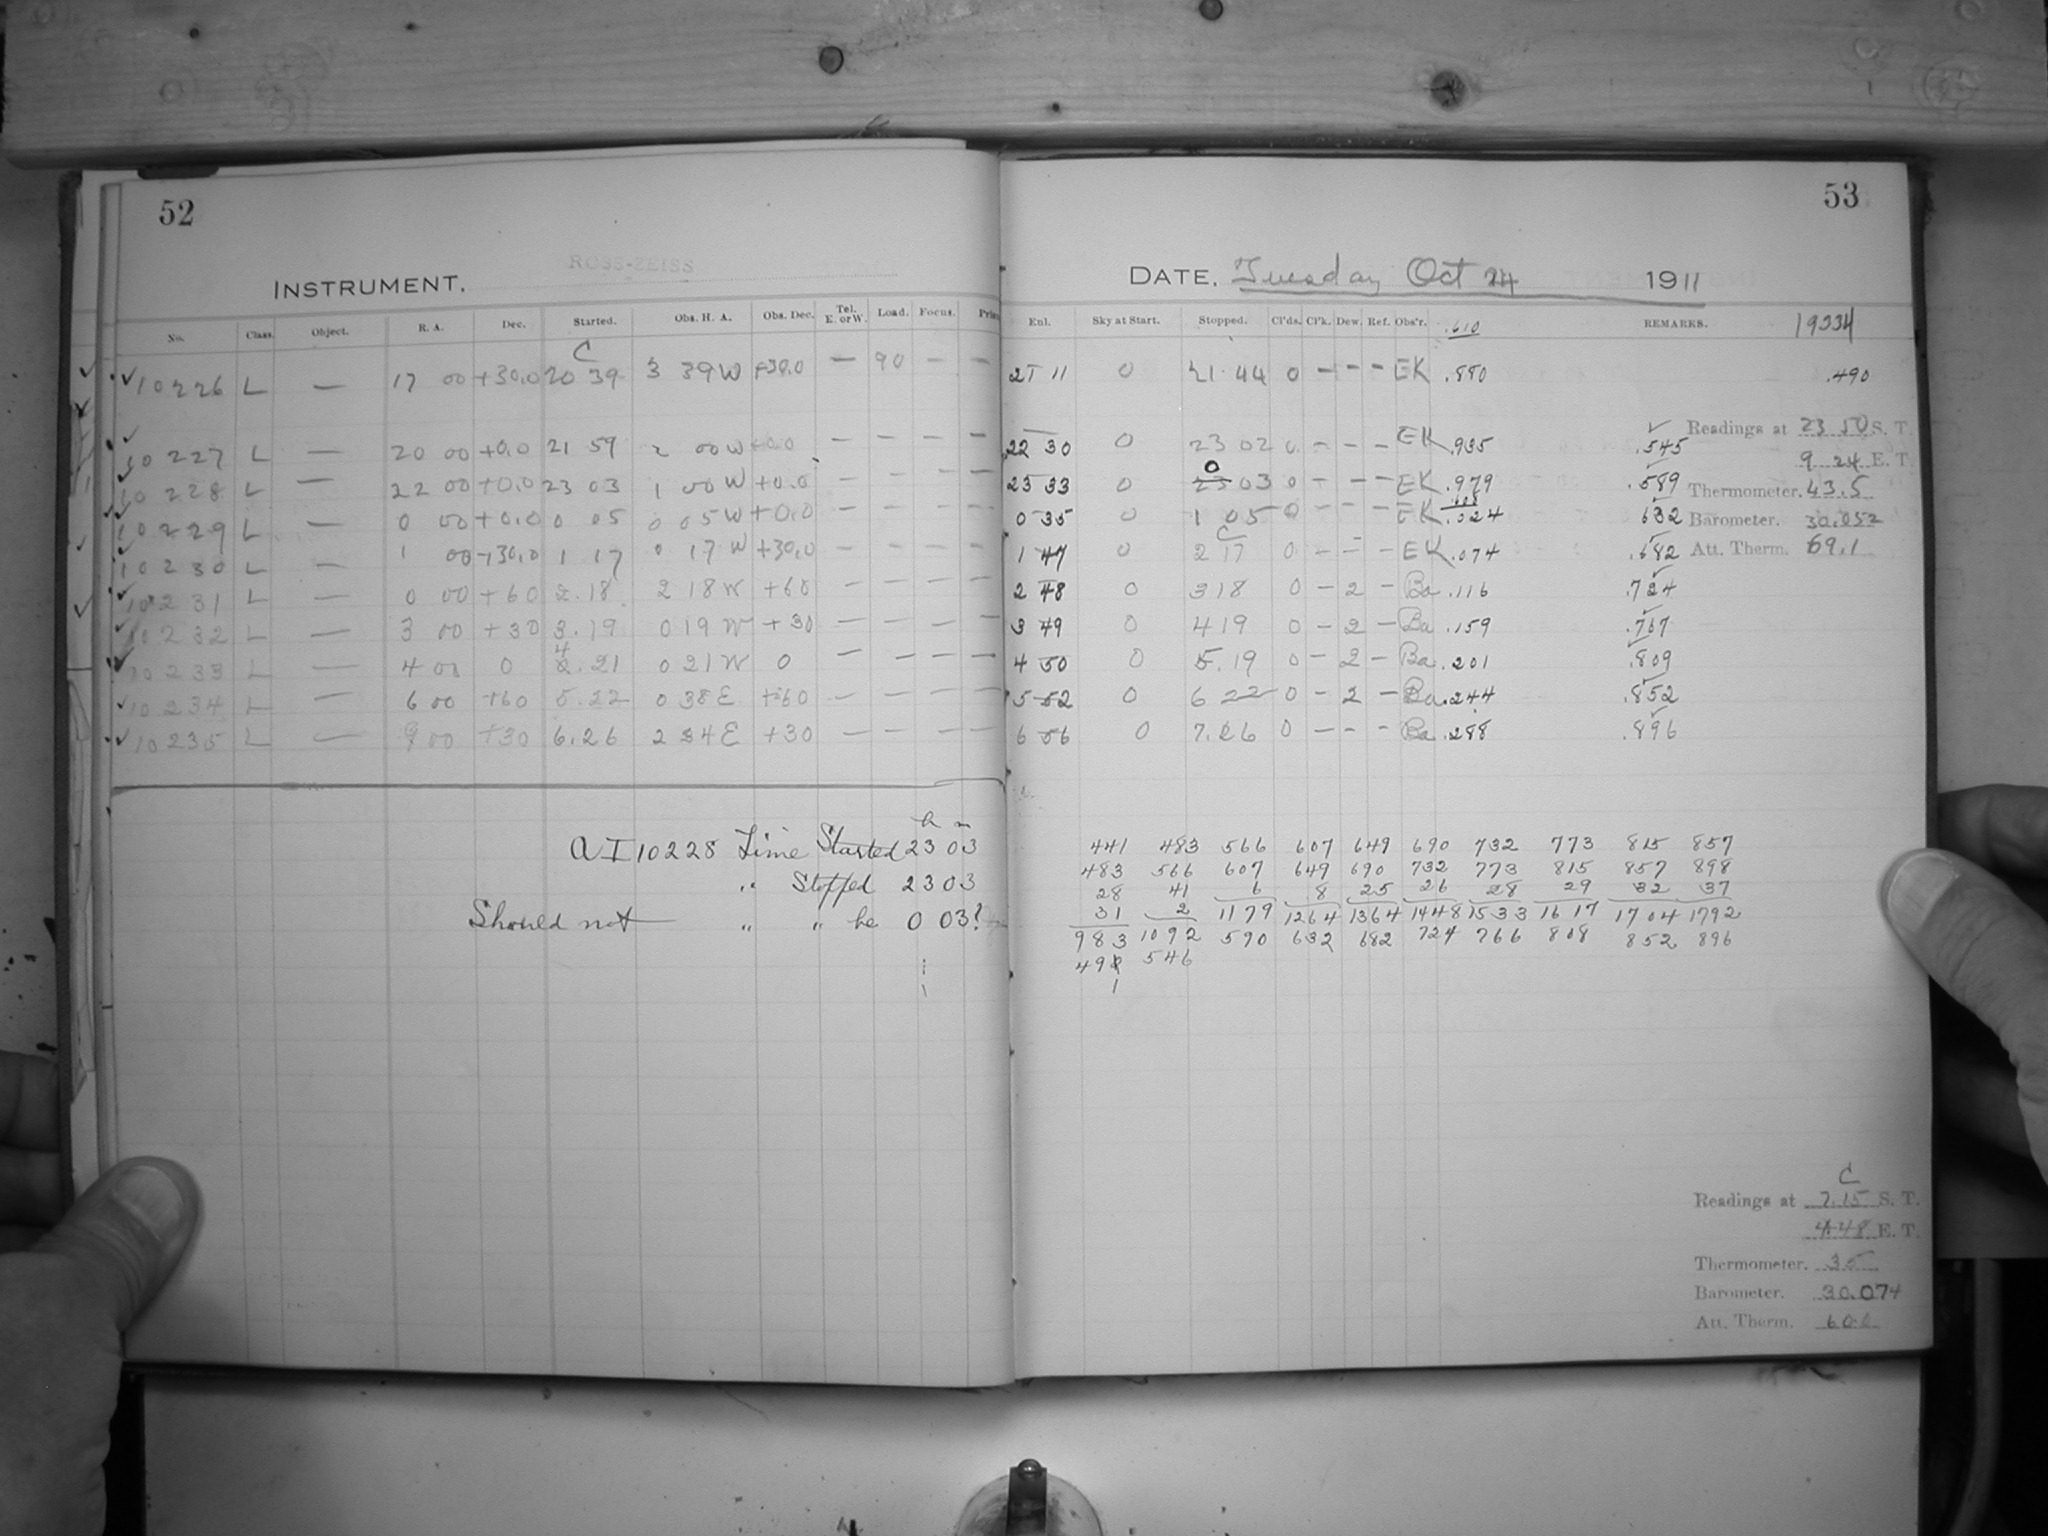 52
INSTRUMENT. ROSS-ZEISS
No. Class. Object. R. A. Dec. Started. Obs. H. A. Obs. Dec. Tel. E. or W. Load. Focus.
C
10226 L — 17 00 +30.0 20 39 3 39W +30.0 — 90 — —
10227 L — 20 00 +0.0 21 59 2 00W +0.0 — — — —
10228 L — 22 00 +0.0 23 03 1 00W +0.0 — — — —
10229 L — 0 00 +0.0 0 05 0 05W +0.0 — — — —
10230 L — 1 00 +30.0 1 17 0 17W +30.0 — — — —
10231 L — 0 00 +60 2.18 2 18W +60 — — — —
10232 L — 3 00 +30 3.19 0 19W +30 — — — —
10233 L — 4 00 0 4.21 0 21W 0 — — — —
10234 L — 6 00 +60 5.22 0 38E +60 — — — —
10235 L — 9 00 +30 6.26 2 34E +30 — — — —
h m
AI 10228 Time Started 23 03
" Stopped 23 03
Should not " " be 0 03?
53
DATE. Tuesday Oct 24 1911
Enl. Sky at Start. Stopped. Cl'ds. Cl'k. Dew. Ref. Obs'r. .610 REMARKS. 19334
21 11 0 21 44 0 — — — EK .880 .490
22 30 0 23 02 0 — — — EK .935 .545
0
23 33 0 23 03 0 — — — EK .979 .589
0 35 0 1 05 0 — — — EK .024 632
C
1 47 0 2 17 0 — — — EK .074 .682
2 48 0 3 18 0 — 2 — Ba .116 .724
3 49 0 4 19 0 — 2 — Ba .159 .767
4 50 0 5.19 0 — 2 — Ba .201 .809
5 52 0 6 22 0 — 2 — Ba .244 .852
6 56 0 7.26 0 — — — Ba .288 .896
Readings at 23 50 S. T.
9 24 E. T.
Thermometer. 43.5
Barometer. 30.052
Att. Therm. 69.1
441 483 566 607 649 690 732 773 815 857
483 566 607 649 690 732 773 815 857 898
28 41 6 8 25 26 28 29 32 37
31 2 1179 1264 1364 1448 1533 1617 1704 1792
983 1092 590 632 682 724 766 808 852 896
492 546
1
C
Readings at 7.15 S. T.
4.48 E. T.
Thermometer. 35
Barometer. 30.074
Att. Therm. 60.0